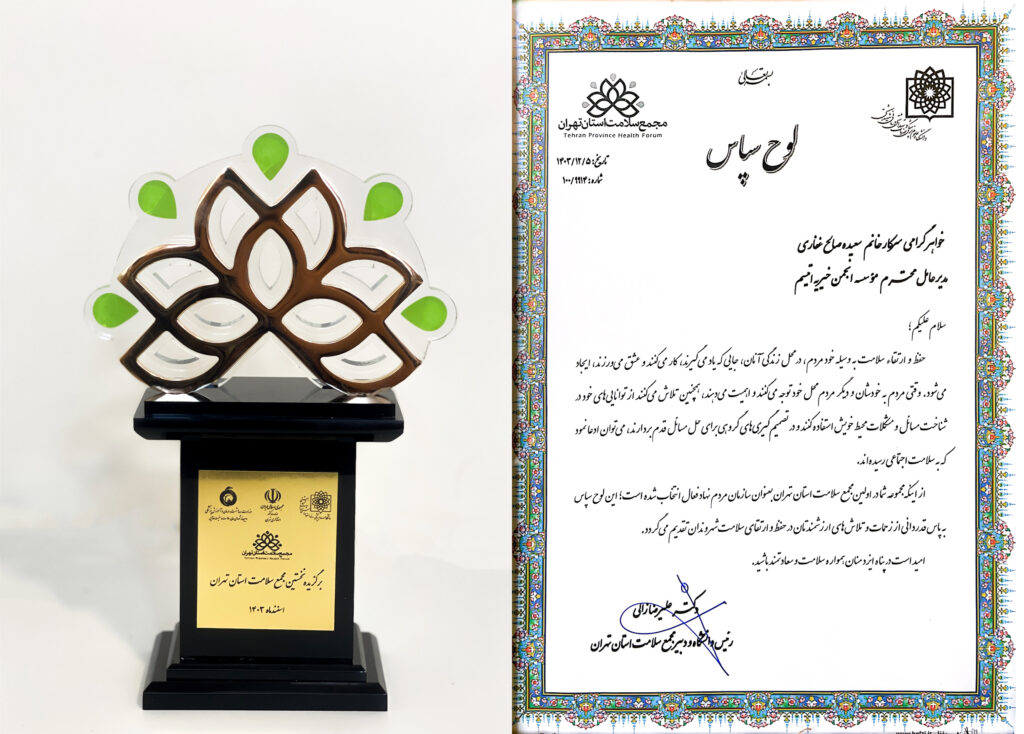 جمهوری اسلامی ایران
مجمع سلامت استان تهران
Tehran Province Health Forum
برگزیده نخستین مجمع سلامت استان تهران
اسفندماه ۱۴۰۳
بسمه تعالی
مجمع سلامت استان تهران
Tehran Province Health Forum
تاریخ: ۱۴۰۳/۱۲/۵
شماره: ۱۰۰/۹۹۱۴
لوح سپاس
خواهر گرامی سرکار خانم سعیده صالح غفاری
مدیرعامل محترم مؤسسه انجمن خیریه اتیسم
سلام علیکم؛
حفظ و ارتقاء سلامت به وسیله خود مردم، در محل زندگی آنان، جایی که یاد می‌گیرند، کار می‌کنند و عشق می‌ورزند، ایجاد
می‌شود. وقتی مردم به خودشان و دیگر مردم محل خود توجه می‌کنند و اهمیت می‌دهند، همچنین تلاش می‌کنند از توانایی‌های خود در
شناخت مسائل و مشکلات محیط خویش استفاده کنند و در تصمیم‌گیری‌های گروهی برای حل مسائل قدم بردارند، می‌توان ادعا نمود
که به سلامت اجتماعی رسیده‌اند.
از اینکه مجموعه شما در اولین مجمع سلامت استان تهران بعنوان سازمان مردم نهاد فعال انتخاب شده است؛ این لوح سپاس
به پاس قدردانی از زحمات و تلاش‌های ارزشمندتان در حفظ و ارتقای سلامت شهروندان تقدیم می‌گردد.
امید است در پناه ایزد منان همواره سلامت و سعادتمند باشید.
دکتر علیرضا زالی
رئیس دانشگاه و دبیر مجمع سلامت استان تهران